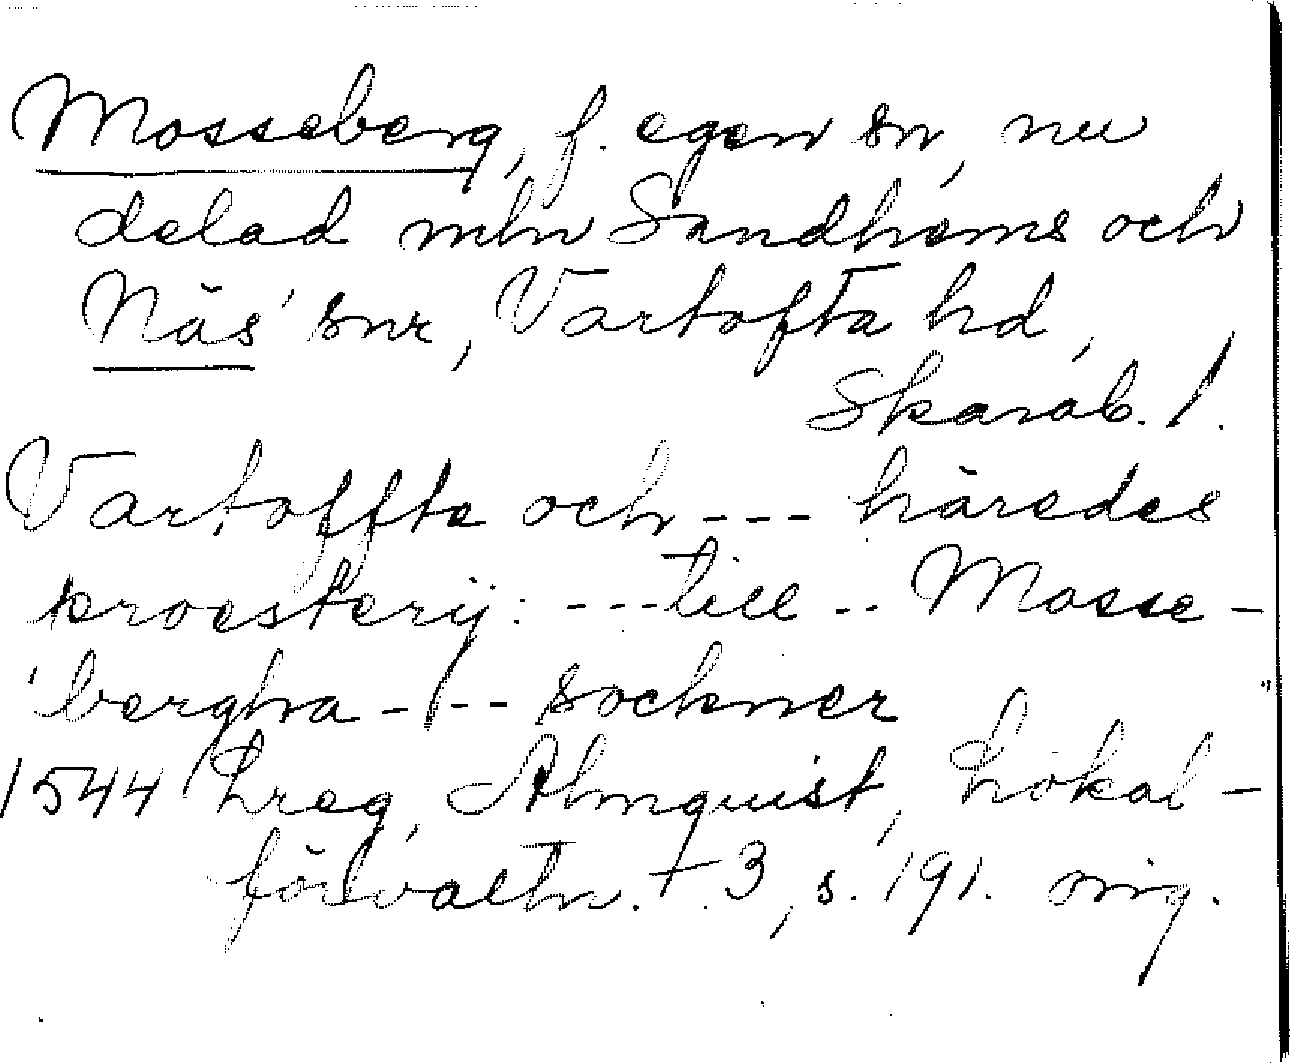 Mosseberg, f. egen sn, nu
delad mln Sandhems och
Näs' snr, Vartofta hd,
Skarab. l.
Vartoffta och --- häredes
proesterij: --- till -- Mosse-
bergha --- sockner
1544 Lreg, Almquist, Lokal-
förvaltn. t. 3, s. 191. orig.